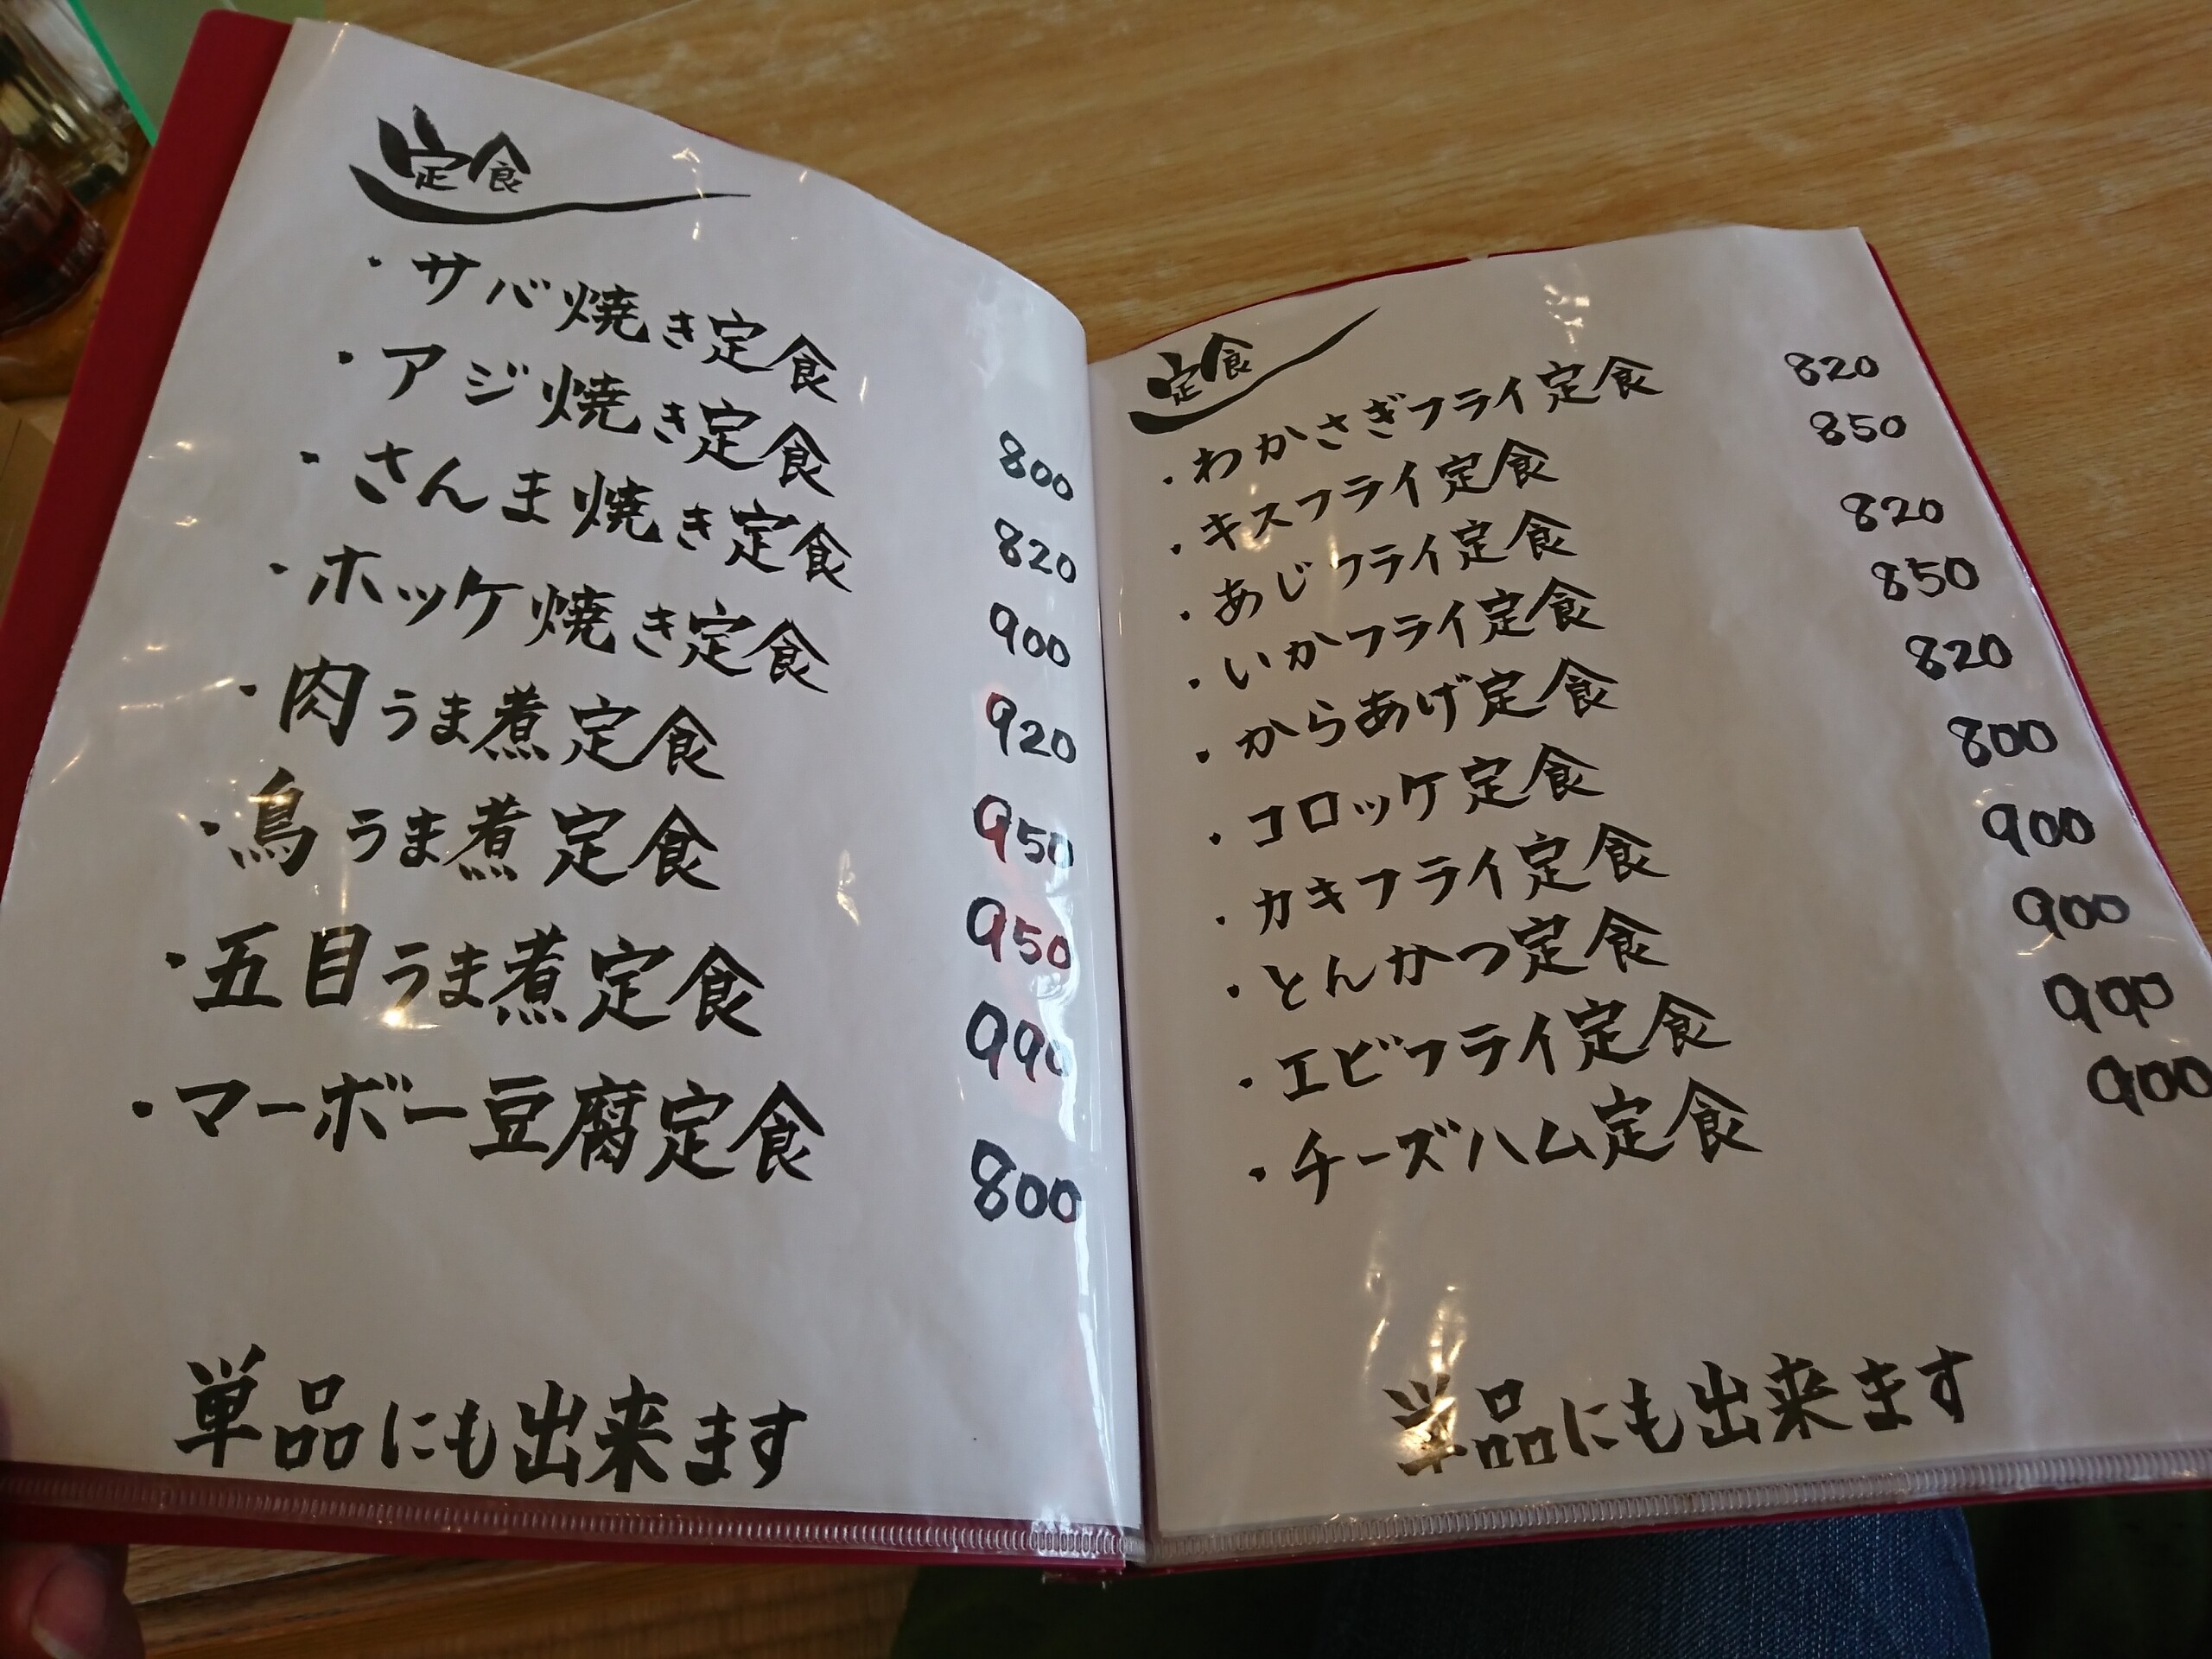 定食
・サバ焼き定食 800
・アジ焼き定食 820
・さんま焼き定食 900
・ホッケ焼き定食 920
・肉うま煮定食 950
・鳥うま煮定食 950
・五目うま煮定食 990
・マーボー豆腐定食 800
単品にも出来ます
定食
・わかさぎフライ定食 820
・キスフライ定食 850
・あじフライ定食 820
・いかフライ定食 850
・からあげ定食 820
・コロッケ定食 800
・カキフライ定食 900
・とんかつ定食 900
・エビフライ定食 990
・チーズハム定食 900
単品にも出来ます